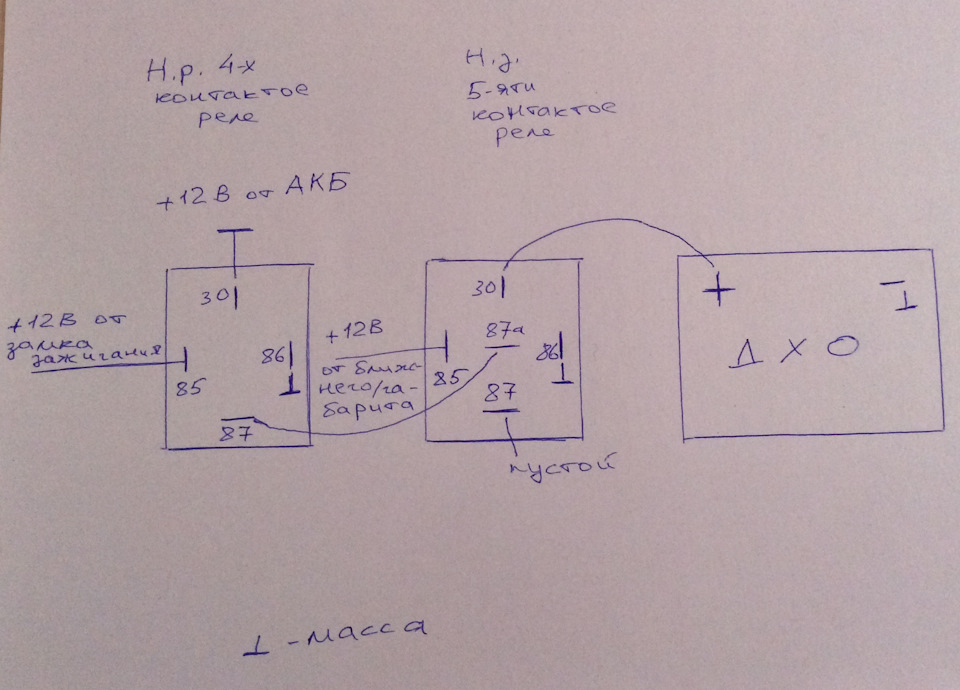 Н.р. 4-х
контактое
реле
Н.з.
5-яти
контактое
реле
+12В от АКБ
30
+12В от
замка
зажигания
85
86
87
+12В
от ближ-
него/га-
барита
30
87а
85
86
87
пустой
+
-
ДХО
⊥ - масса